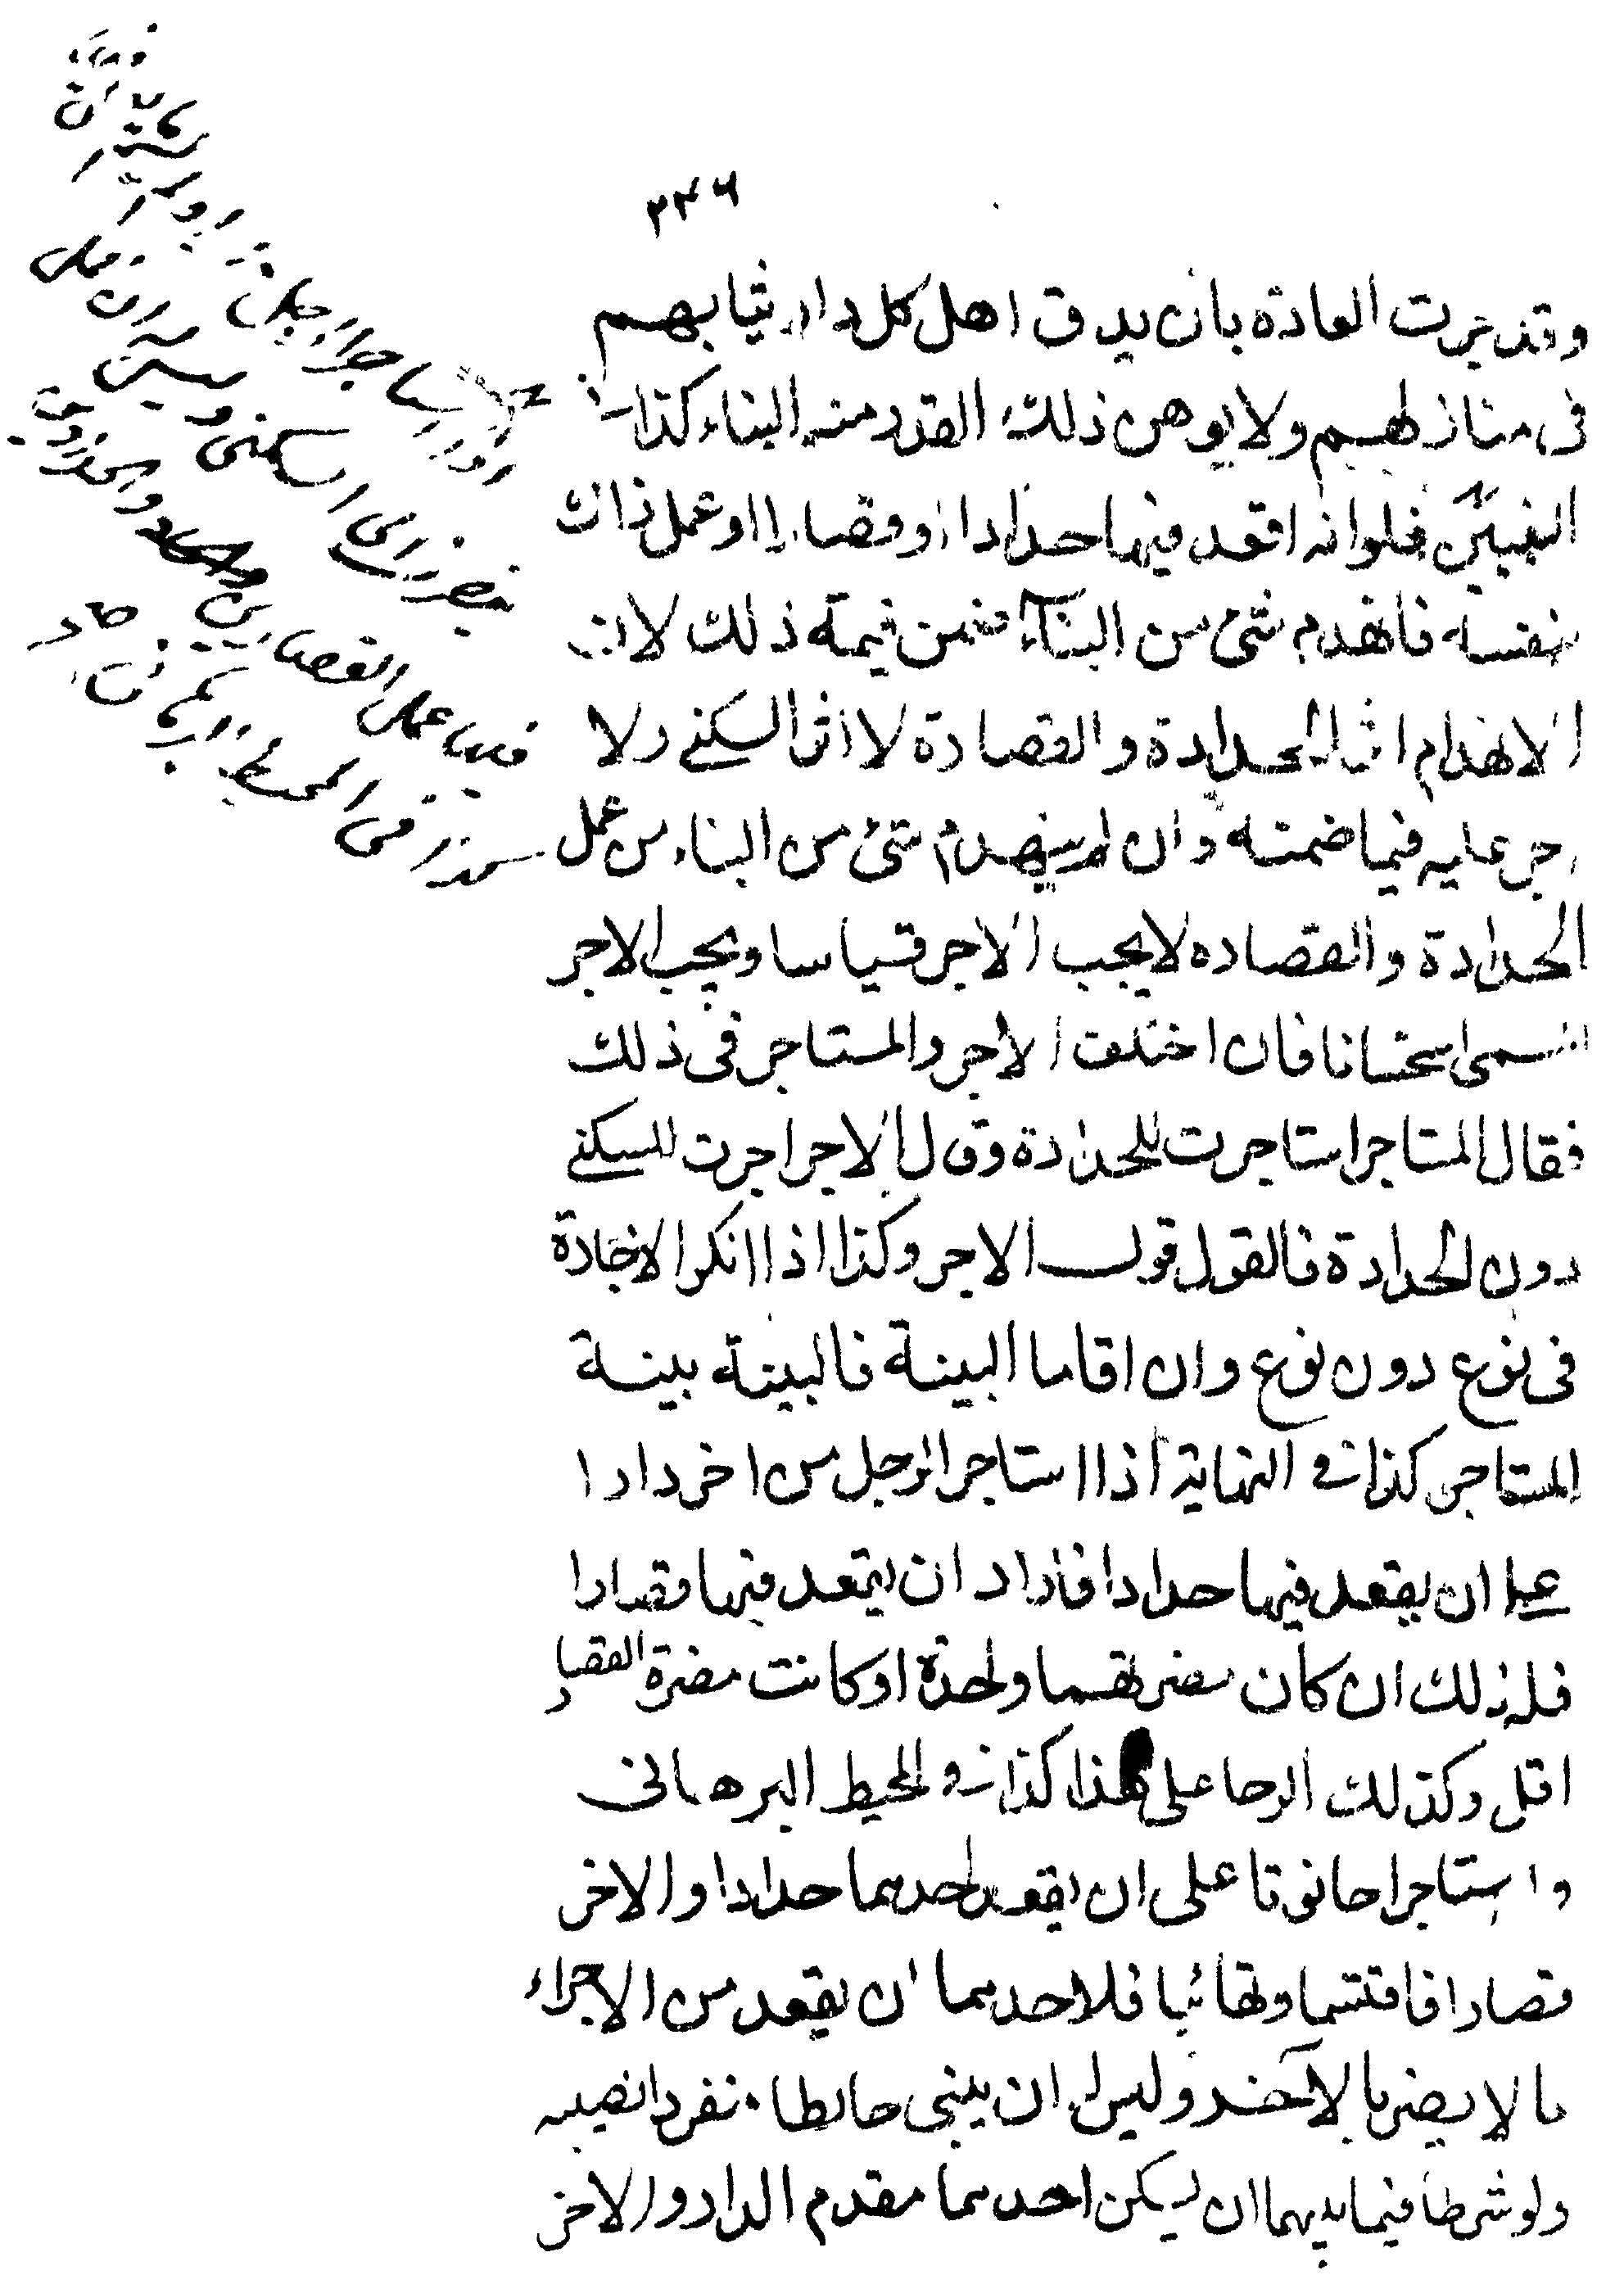 ٢٣٦
وقد جرت العادة بان يدق اهل كل دار ثيابهم
فى منازلهم ولا يوهن ذلك القدر منه البناء كذا فى
التبيين فلو انه اقعد فيها حدادا او قصارا او عمل ذلك
بنفسه فانهدم شئ من البناء ضمن قيمة ذلك لان
الانهدام اثر الحدادة والقصارة لا اثر السكنى ولا
اجر عليه فيما ضمنه وان لم ينهدم شئ من البناء من عمل
الحدادة والقصاره لا يجب الاجر قياسا ويجب الاجر
المسمى استحسانا فان اختلف الاجر والمستاجر فى ذلك
فقال المستاجر استاجرت للحدادة وقال الاجر اجرت للسكنى
دون الحدادة فالقول قول الاجر وكذا اذا انكر الاجارة
فى نوع دون نوع وان اقاما البينة فالبينة بينة
المستاجر كذا فى النهاية اذا استاجر الرجل من اخر دارا
على ان يقعد فيها حدادا فاراد ان يقعد فيها قصارا
فله ذلك ان كان مضرتهما واحدة او كانت مضرة القصار
اقل وكذلك الرحا على هذا كذا فى المحيط البرهانى
واستاجرا حانوتا على ان يقعد احدهما حدادا والاخر
قصارا فاقتسما وتهائبا فلاحدهما ان يقعد من الاجراء
ما لا يضر بالآخر وليس له ان يبنى حائطا نفرد انصيبه
ولو شرطا فيما بينهما ان يسكن احدهما مقدم الدار والاخر
السكنى
فيها عمل القصارين
فى المحيط